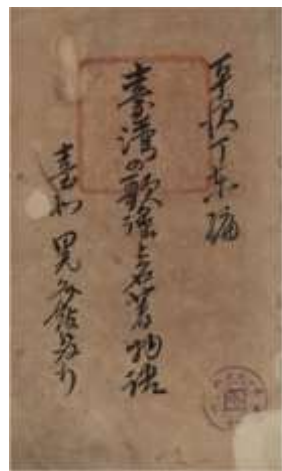 平澤丁東編
臺灣の歌謠と名著物語
臺北 晃文館發行